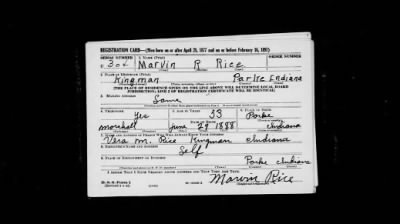 REGISTRATION CARD—(Men born on or after April 28, 1877 and on or before February 16, 1897)
SERIAL NUMBER 1. NAME (Print) ORDER NUMBER
Marvin R Rice
2. PLACE OF RESIDENCE (Print)
Kingman Parke Indiana
[THE PLACE OF RESIDENCE GIVEN ON THE LINE ABOVE WILL DETERMINE LOCAL BOARD
JURISDICTION; LINE 2 OF REGISTRATION CERTIFICATE WILL BE IDENTICAL]
3. MAILING ADDRESS
Same
4. TELEPHONE 5. AGE IN YEARS 6. PLACE OF BIRTH
Yes 53 Parke
marshall June 29 1888 Indiana
Vera M. Rice Kingman Indiana
Self
Parke Indiana
I AFFIRM THAT I HAVE VERIFIED ABOVE ANSWERS AND THAT THEY ARE TRUE.
Marvin Rice